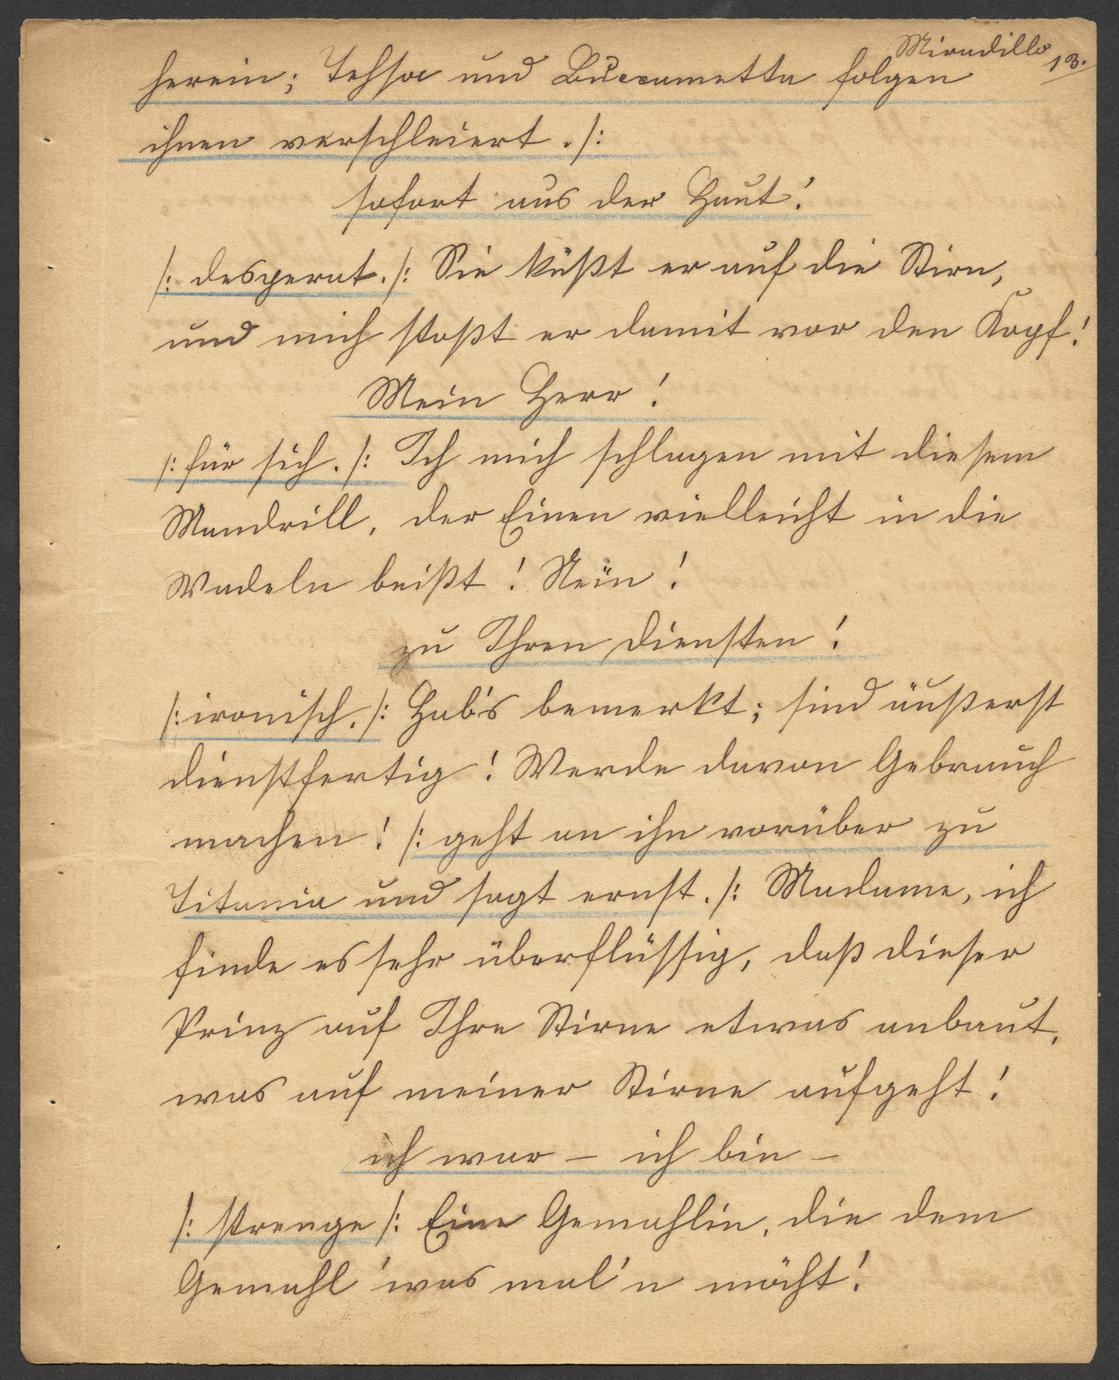 Miradillo 13.
herein; Tessa und Buccametta folgen
ihnen verschleiert ./:
sofort aus der Haut!
/: desperat. /: Sie küßt er auf die Stirn,
und mich stoßt er damit vor den Kopf!
Mein Herr!
/: für sich. /: Ich mich schlagen mit diesem
Mandrill, der Einen vielleicht in die
Wadeln beißt! Nein!
zu Ihren Diensten!
/: ironisch. /: Hab's bemerkt; sind äußerst
dienstfertig! Werde davon Gebrauch
machen! /: geht an ihn vorüber zu
Titania und sagt ernst. /: Madame, ich
finde es sehr überflüssig, daß dieser
Prinz auf Ihre Stirne etwas anbaut,
was auf meiner Stirne aufgeht!
ich war – ich bin –
/: strenge /: Eine Gemahlin, die dem
Gemahl 'was mal'n möcht!